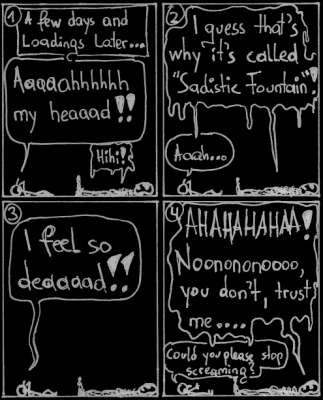 1
A few days and
Loadings Later...
Aaaaahhhhhh
my heaaad!!
Hihi!!
2
I guess that's
why it's called
"Sadistic Fountain"!
Aaaah...
3
I feel so
deaaaad!!
4
AHAHAHAHAA!
Noonononoooo,
you don't, trust
me....
Could you please stop
screaming?